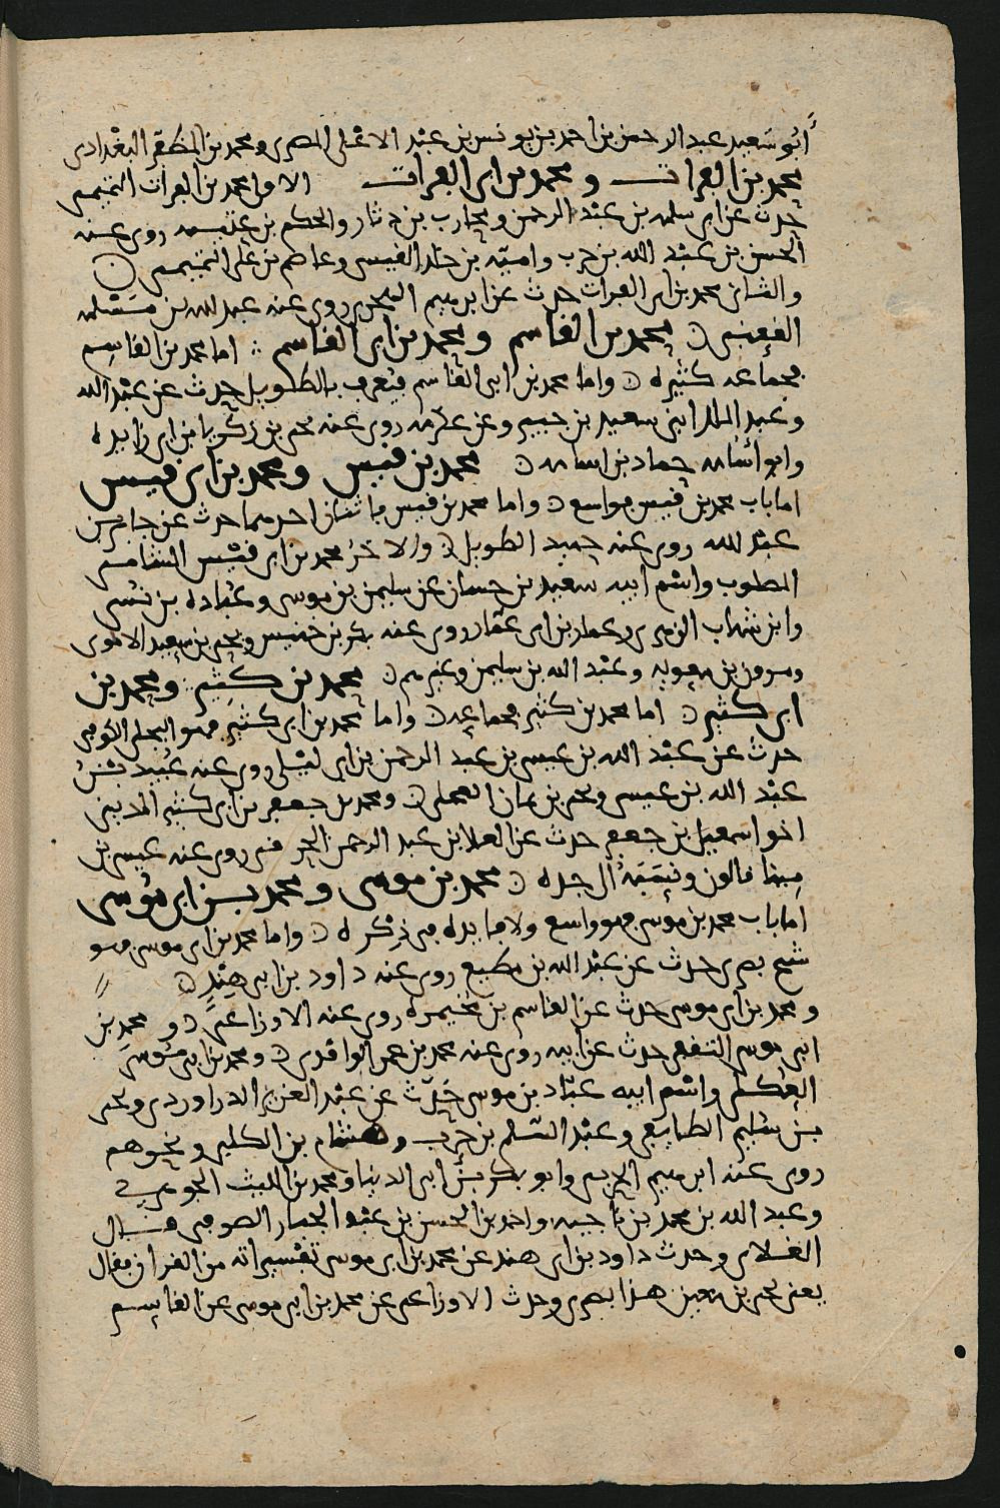 أبو سعيد عبد الرحمن بن احمد بن يونس بن عبد الاعلى المصرى ومحمد بن المظفر البغدادى
محمد بن الفرات و محمد بن ابى الفرات الاول محمد بن الفرات التميمى
حدث عن ابى سلمه بن عبد الرحمن ومحارب بن دثار والحكم بن عتيبه روى عنه
الحسن بن عبد الله بن حرب واميه بن خلد القيسى وعاصم بن على التميمى
والثانى محمد بن ابى الفرات حدث عن ابرهيم النخعى روى عنه عبد الله بن مسلمه
القعنبى محمد بن القاسم و محمد بن ابى القاسم اما محمد بن القاسم
فجماعه كثيره واما محمد بن ابى القاسم فيعرف بالطويل حدث عن عبد الله
وعبد الملك ابنى سعيد بن جبير وعن عكرمه روى عنه يحيى بن زكريا بن ابى زايده
وابو أسامه حماد بن اسامه محمد بن قيس ومحمد بن ابى قيس
اما باب محمد بن قيس فواسع واما محمد بن قيس فاثنان احدهما حدث عن جابر بن
عبد الله روى عنه حميد الطويل والاخر محمد بن ابى قيس الشامى
المطلوب واسم ابيه سعيد بن حسان عن سليمن بن موسى وعباده بن نسى
وابن شهاب الزهرى وعمار بن ابى عمار روى عنه بكر بن خنيس ويحيى بن سعيد الاموى
ومرون بن معويه وعبد الله بن سليمن وغيرهم محمد بن كثير ومحمد بن
ابى كثير اما محمد بن كثير فجماعه واما محمد بن ابى كثير فهو البجلى الكوفى
حدث عن عبد الله بن عيسى بن عبد الرحمن بن ابى ليلى روى عنه عبيد بن
عبد الله بن عيسى ويحيى بن يمان العجلى ومحمد بن جعفر بن ابى كثير المدينى
اخو اسمعيل بن جعفر حدث عن العلا بن عبد الرحمن الحرقى روى عنه عيسى بن
مينا قالون ونسبه ال جده محمد بن موسى و محمد بن ابى موسى
اما باب محمد بن موسى فهو واسع ولا فايده فى ذكره واما محمد بن ابى موسى فهو
شيخ بصرى حدث عن عبد الله بن مطيع روى عنه داود بن ابى هند
ومحمد بن ابى موسى حدث عن القاسم بن مخيمره روى عنه الاوزاعى ومحمد بن
ابى موسى الثقفى حدث عن ابيه روى عنه محمد بن عمر الواقدى ومحمد بن ابى موسى
العكلى واسم ابيه عباد بن موسى حدث عن عبد العزيز الدراوردى ويحيى
بن سليم الطايفى وعبد السلم بن حرب وهشام بن الكلبى ونحوهم
روى عنه ابرهيم الحربى وابو بكر بن ابى الدنيا ومحمد بن الليث الجوهرى
وعبد الله بن محمد بن ناجيه واحمد بن الحسن بن عبد الجبار الصوفى قال
الغلابى وحدث داود بن ابى هند عن محمد بن ابى موسى تفسير اته من القران فقال
يعنى يحيى بن معين هذا بصرى وحدث الاوزاعى عن محمد بن ابى موسى عن القاسم